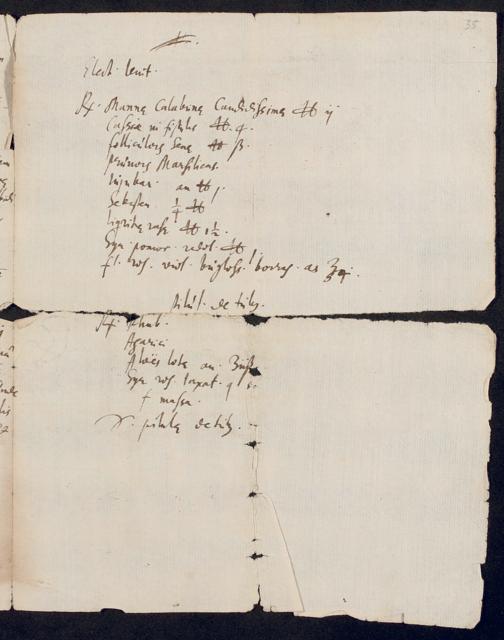 35
Elect. lenit.
Rx. Mannæ Calabrinæ Candidissimæ ℔ ij
Cassiæ in fistulis ℔. 4.
folliculorū Senæ ℔ ß.
Prunorū Massilien.
Jujubar. an ℔ j.
Sebesten ¼ ℔
liqiritæ rasæ ℔ 1½.
Syr. pomor. redol. ℔ j
fl. ros. viol. bugloss. borrag. aa ℥
Pilul. de trib.
Rx. Rhab.
Agarici
Aloës lotæ an. ℥
Syr. ros. laxat. q s.
f massa.
S. pilulæ de trib.